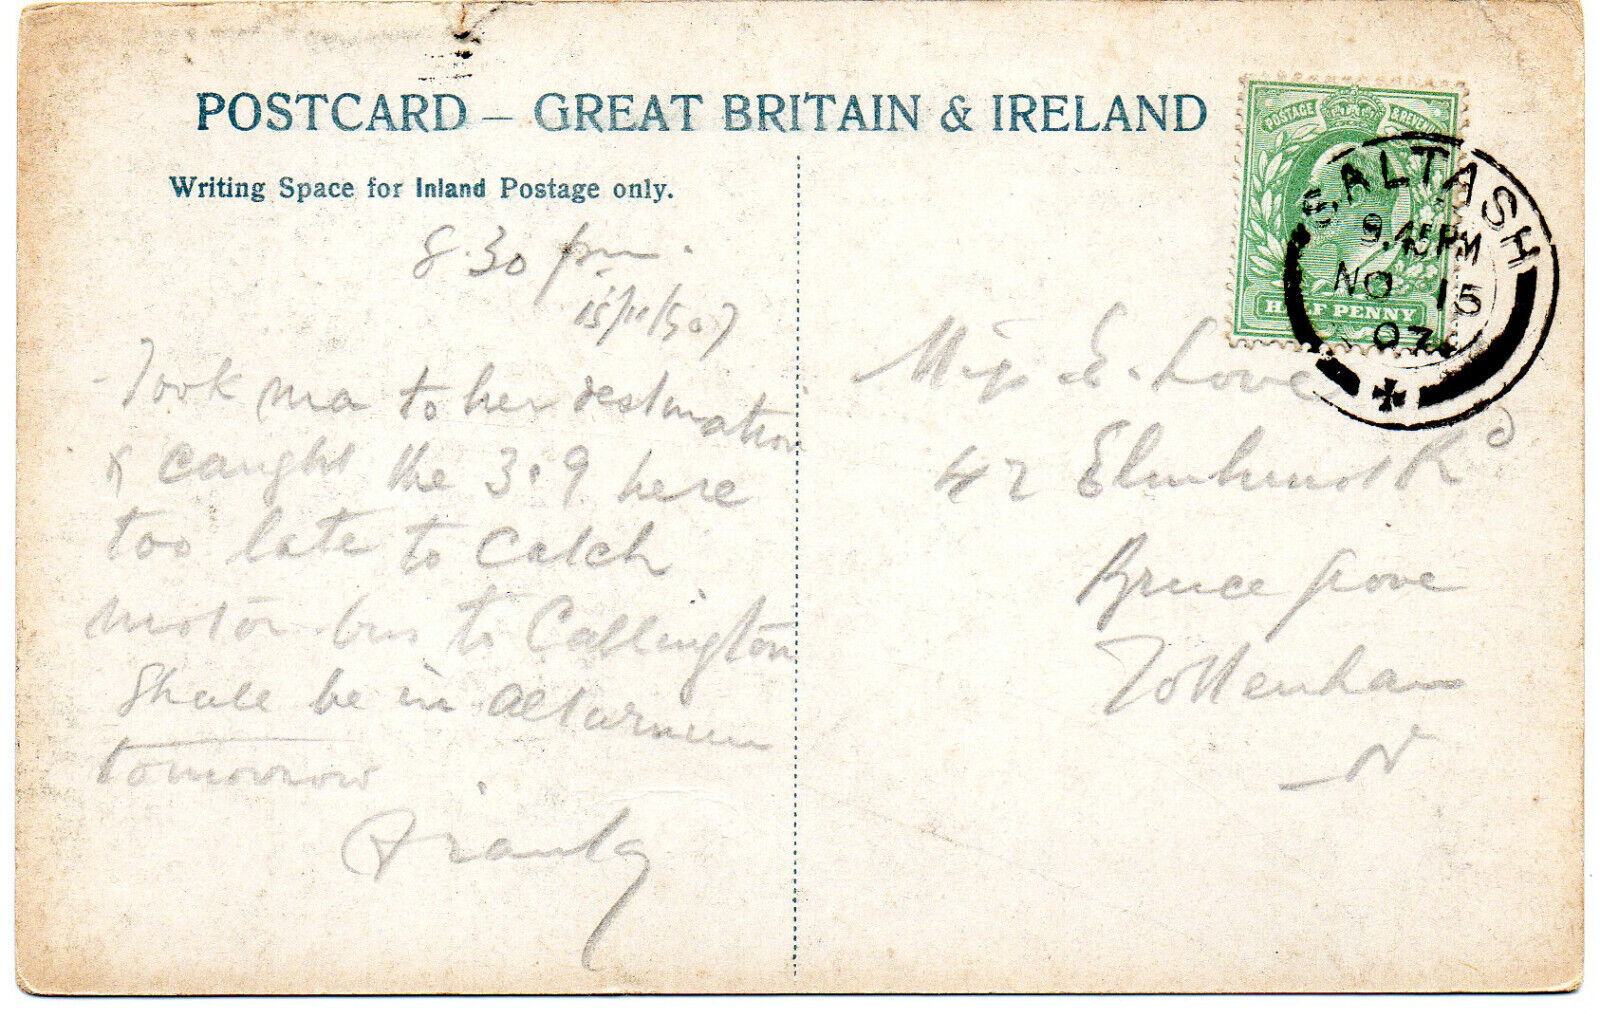 POSTCARD – GREAT BRITAIN & IRELAND
Writing Space for Inland Postage only.
8.30 pm.
15/11/07
Took ma to her destination
& caught the 3.9 here
too late to catch
motor bus to Callington
Shall be in Altarnun
tomorrow
Franky
POSTAGE & REVENUE
HALF PENNY
SALTASH
9.45PM
NO 15
07
Miss E. Love
42 Elmhurst Rd
Bruce Grove
Tottenham
N